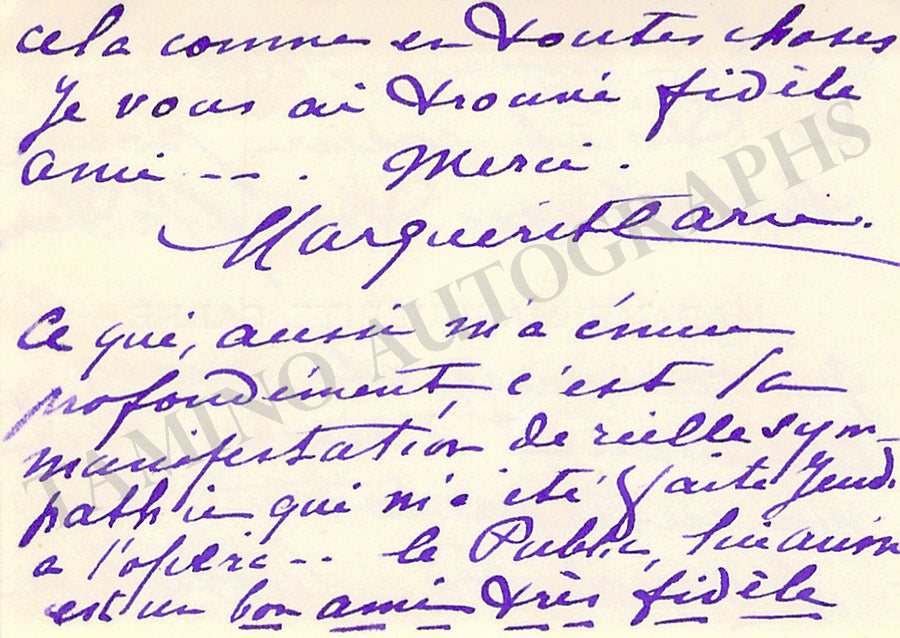 cela comme en toutes choses
Je vous ai trouvé fidèle
ami -- . Merci .
Marguerite Carré.
Ce qui, aussi m'a émue
profondément, c'est la
manifestation de réelle sym-
pathie qui m'a été faite Jeudi
a l'opéra -- le Public, lui aussi
est un bon ami très fidèle
TAMINO AUTOGRAPHS